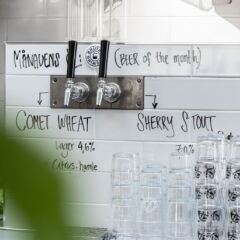 MÅNADENS ÖL (BEER of the month)
COMET WHEAT SHERRY STOUT
Lager 4,6% 7,0%
Citrus, humle